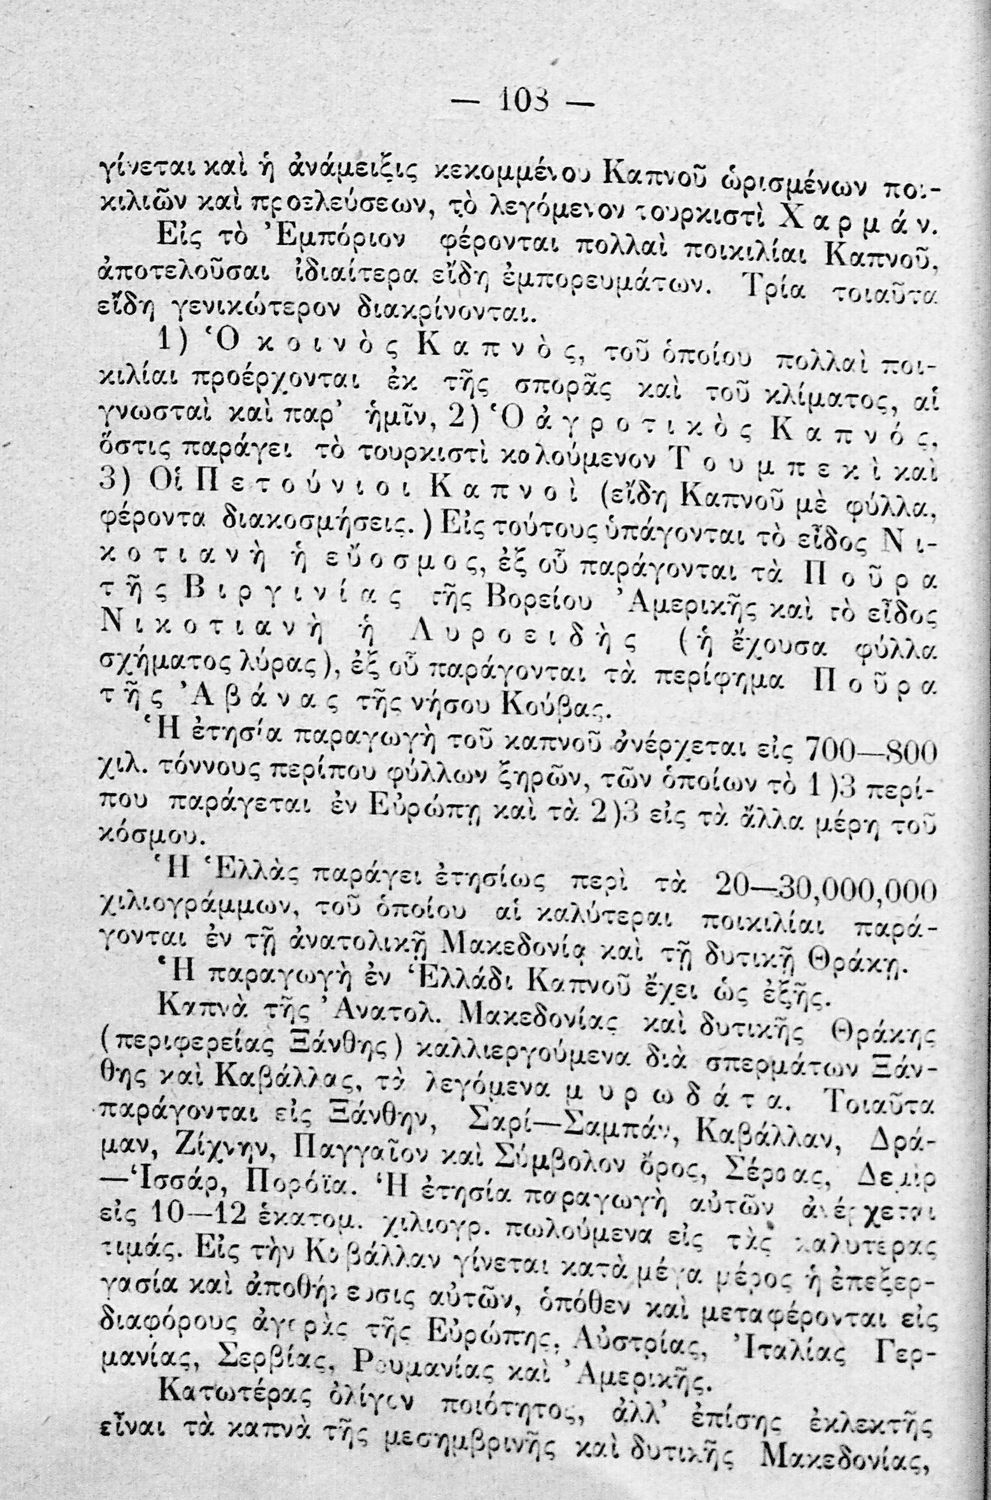 — 108 —
γίνεται καὶ ἡ ἀνάμειξις κεκομμένου Καπνοῦ ὡρισμένων ποι-
κιλιῶν καὶ προελεύσεων, τὸ λεγόμενον τουρκιστὶ Χαρμάν.
Εἰς τὸ Ἐμπόριον φέρονται πολλαὶ ποικιλίαι Καπνοῦ,
ἀποτελοῦσαι ἰδιαίτερα εἴδη ἐμπορευμάτων. Τρία τοιαῦτα
εἴδη γενικώτερον διακρίνονται.
1) Ὁ κοινὸς Καπνὸς, τοῦ ὁποίου πολλαὶ ποι-
κιλίαι προέρχονται ἐκ τῆς σπορᾶς καὶ τοῦ κλίματος, αἱ
γνωσταὶ καὶ παρ’ ἡμῖν, 2) Ὁ ἀγροτικὸς Καπνός,
ὅστις παράγει τὸ τουρκιστὶ καλούμενον Τουμπεκὶ καὶ
3) Οἱ Πετούνιοι Καπνοὶ (εἴδη Καπνοῦ μὲ φύλλα,
φέροντα διακοσμήσεις.) Εἰς τούτους ὑπάγονται τὸ εἶδος Νι-
κοτιανὴ ἡ εὔοσμος, ἐξ οὗ παράγονται τὰ Ποῦρα
τῆς Βιργινίας τῆς Βορείου Ἀμερικῆς καὶ τὸ εἶδος
Νικοτιανὴ ἡ Λυροειδὴς (ἡ ἔχουσα φύλλα
σχήματος λύρας), ἐξ οὗ παράγονται τὰ περίφημα Ποῦρα
τῆς Ἀβάνας τῆς νήσου Κούβας.
Ἡ ἐτησία παραγωγὴ τοῦ καπνοῦ ἀνέρχεται εἰς 700—800
χιλ. τόννους περίπου φύλλων ξηρῶν, τῶν ὁποίων τὸ 1)3 περί-
που παράγεται ἐν Εὐρώπῃ καὶ τὰ 2)3 εἰς τὰ ἄλλα μέρη τοῦ
κόσμου.
Ἡ Ἑλλὰς παράγει ἐτησίως περὶ τὰ 20—30,000,000
χιλιογράμμων, τοῦ ὁποίου αἱ καλύτεραι ποικιλίαι παρά-
γονται ἐν τῇ ἀνατολικῇ Μακεδονίᾳ καὶ τῇ δυτικῇ Θράκῃ.
Ἡ παραγωγὴ ἐν Ἑλλάδι Καπνοῦ ἔχει ὡς ἐξῆς.
Καπνὰ τῆς Ἀνατολ. Μακεδονίας καὶ δυτικῆς Θράκης
(περιφερείας Ξάνθης) καλλιεργούμενα διὰ σπερμάτων Ξάν-
θης καὶ Καβάλλας, τὰ λεγόμενα μυρωδάτα. Τοιαῦτα
παράγονται εἰς Ξάνθην, Σαρί—Σαμπάν, Καβάλλαν, Δρά-
μαν, Ζίχνην, Παγγαῖον καὶ Σύμβολον ὄρος, Σέρρας, Δεμὶρ
—Ἱσσάρ, Πορόϊα. Ἡ ἐτησία παραγωγὴ αὐτῶν ἀνέρχεται
εἰς 10—12 ἑκατομ. χιλιογρ. πωλούμενα εἰς τὰς καλυτέρας
τιμάς. Εἰς τὴν Καβάλλαν γίνεται κατὰ μέγα μέρος ἡ ἐπεξερ-
γασία καὶ ἀποθήκευσις αὐτῶν, ὁπόθεν καὶ μεταφέρονται εἰς
διαφόρους ἀγορὰς τῆς Εὐρώπης, Αὐστρίας, Ἰταλίας Γερ-
μανίας, Σερβίας, Ρουμανίας καὶ Ἀμερικῆς.
Κατωτέρας ὀλίγον ποιότητος, ἀλλ’ ἐπίσης ἐκλεκτῆς
εἶναι τὰ καπνὰ τῆς μεσημβρινῆς καὶ δυτικῆς Μακεδονίας,